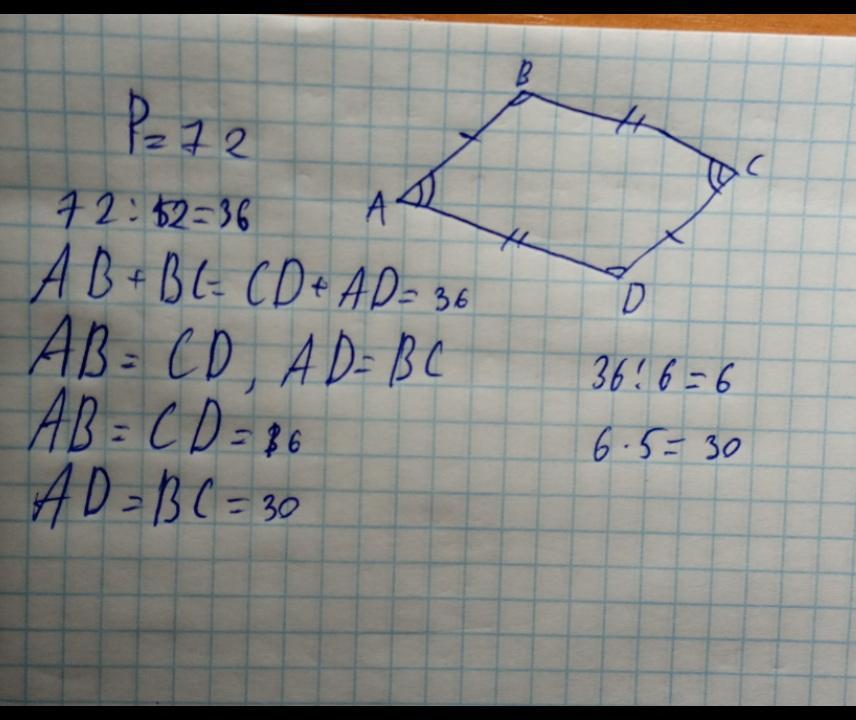 P=72
72:2=36
AB+BC=CD+AD=36
AB=CD, AD=BC
AB=CD=6
AD=BC=30
B
C
A
D
36:6=6
6·5=30